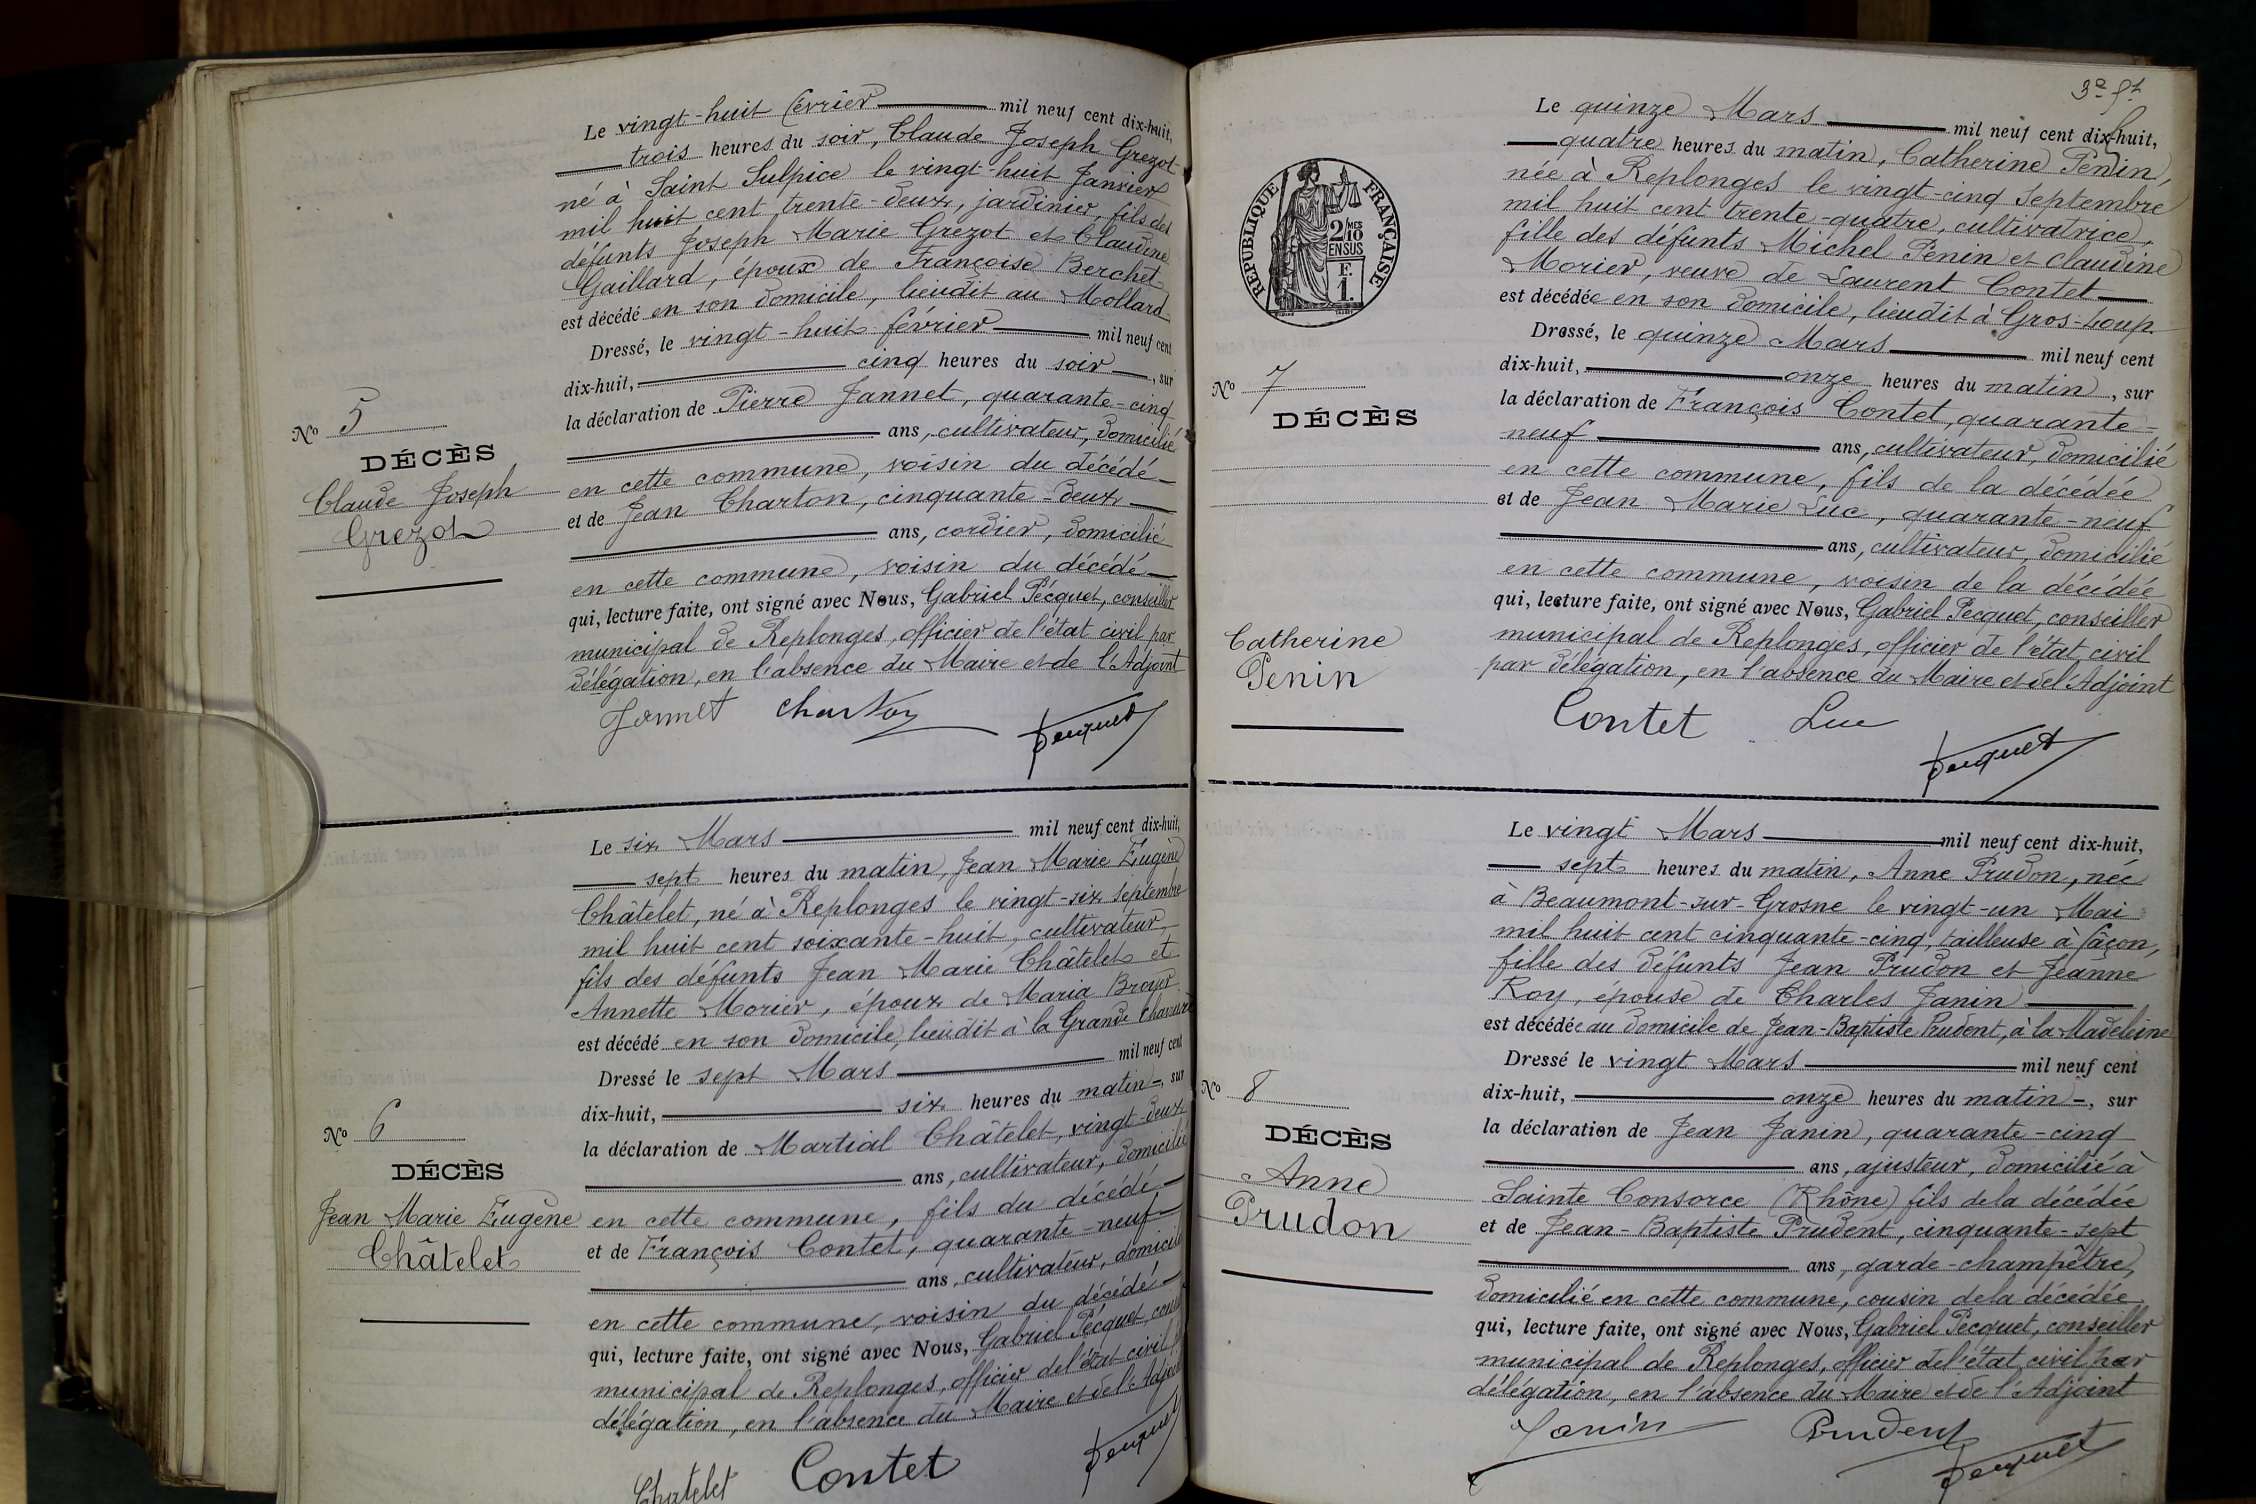 Le vingt-huit février mil neuf cent dix-huit,
trois heures du soir, Claude Joseph Grezot
né à Saint Sulpice le vingt-huit Janvier
mil huit cent trente-deux, jardinier, fils des
défunts Joseph Marie Grezot et Claudine
Gaillard, époux de Françoise Berchet
est décédé en son domicile, lieudit au Mollard
Dressé, le vingt-huit février mil neuf cent
dix-huit, cinq heures du soir, sur
la déclaration de Pierre Jannet, quarante-cinq
ans, cultivateur, domicilié
en cette commune, voisin du décédé
et de Jean Charton, cinquante-deux
ans, cordier, domicilié
en cette commune, voisin du décédé
qui, lecture faite, ont signé avec Nous, Gabriel Pécquet, conseiller
municipal de Replonges, officier de l'état civil par
délégation, en l'absence du Maire et de l'Adjoint
Jannet Charton Pecquet
No 5
DÉCÈS
Claude Joseph
Grezot
Le six Mars mil neuf cent dix-huit,
sept heures du matin, Jean Marie Eugène
Châtelet, né à Replonges le vingt-six Septembre
mil huit cent soixante-huit, cultivateur,
fils des défunts Jean Marie Châtelet et
Annette Morier, époux de Maria Broyer
est décédé en son domicile, lieudit à la Grande
Dressé le sept Mars mil neuf cent
dix-huit, six heures du matin, sur
la déclaration de Martial Châtelet, vingt-deux
ans, cultivateur, domicilié
en cette commune, fils du décédé
et de François Contet, quarante-neuf
ans, cultivateur, domicilié
en cette commune, voisin du décédé
qui, lecture faite, ont signé avec Nous, Gabriel Pécquet,
municipal de Replonges, officier de l'état civil
délégation, en l'absence du Maire et de l'Adjoint
Chatelet Contet Pecquet
No 6
DÉCÈS
Jean Marie Eugène
Châtelet
Le quinze Mars mil neuf cent dix-huit,
quatre heures du matin, Catherine Penin,
née à Replonges le vingt-cinq Septembre
mil huit cent trente-quatre, cultivatrice,
fille des défunts Michel Penin et Claudine
Morier, veuve de Laurent Contet
est décédée en son domicile, lieudit à Gros-Loup
Dressé, le quinze Mars mil neuf cent
dix-huit, onze heures du matin, sur
la déclaration de François Contet, quarante-
neuf ans, cultivateur, domicilié
en cette commune, fils de la décédée
et de Jean Marie Luc, quarante-neuf
ans, cultivateur, domicilié
en cette commune, voisin de la décédée
qui, lecture faite, ont signé avec Nous, Gabriel Pecquet, conseiller
municipal de Replonges, officier de l'état civil
par délégation, en l'absence du Maire et de l'Adjoint
Contet Luc Pecquet
RÉPUBLIQUE FRANÇAISE
2/10MES
EN SUS
F.
1.
No 7
DÉCÈS
Catherine
Penin
Le vingt Mars mil neuf cent dix-huit,
sept heures du matin, Anne Prudon, née
à Beaumont-sur-Grosne le vingt-un Mai
mil huit cent cinquante-cinq, tailleuse à façon,
fille des défunts Jean Prudon et Jeanne
Roy, épouse de Charles Janin
est décédée au domicile de Jean-Baptiste Prudent, à la Madeleine
Dressé le vingt Mars mil neuf cent
dix-huit, onze heures du matin, sur
la déclaration de Jean Janin, quarante-cinq
ans, ajusteur, domicilié à
Sainte Consorce (Rhône) fils de la décédée
et de Jean-Baptiste Prudent, cinquante-sept
ans, garde-champêtre,
domicilié en cette commune, cousin de la décédée
qui, lecture faite, ont signé avec Nous, Gabriel Pecquet, conseiller
municipal de Replonges, officier de l'état civil par
délégation, en l'absence du Maire et de l'Adjoint
Janin Prudent Pecquet
No 8
DÉCÈS
Anne
Prudon